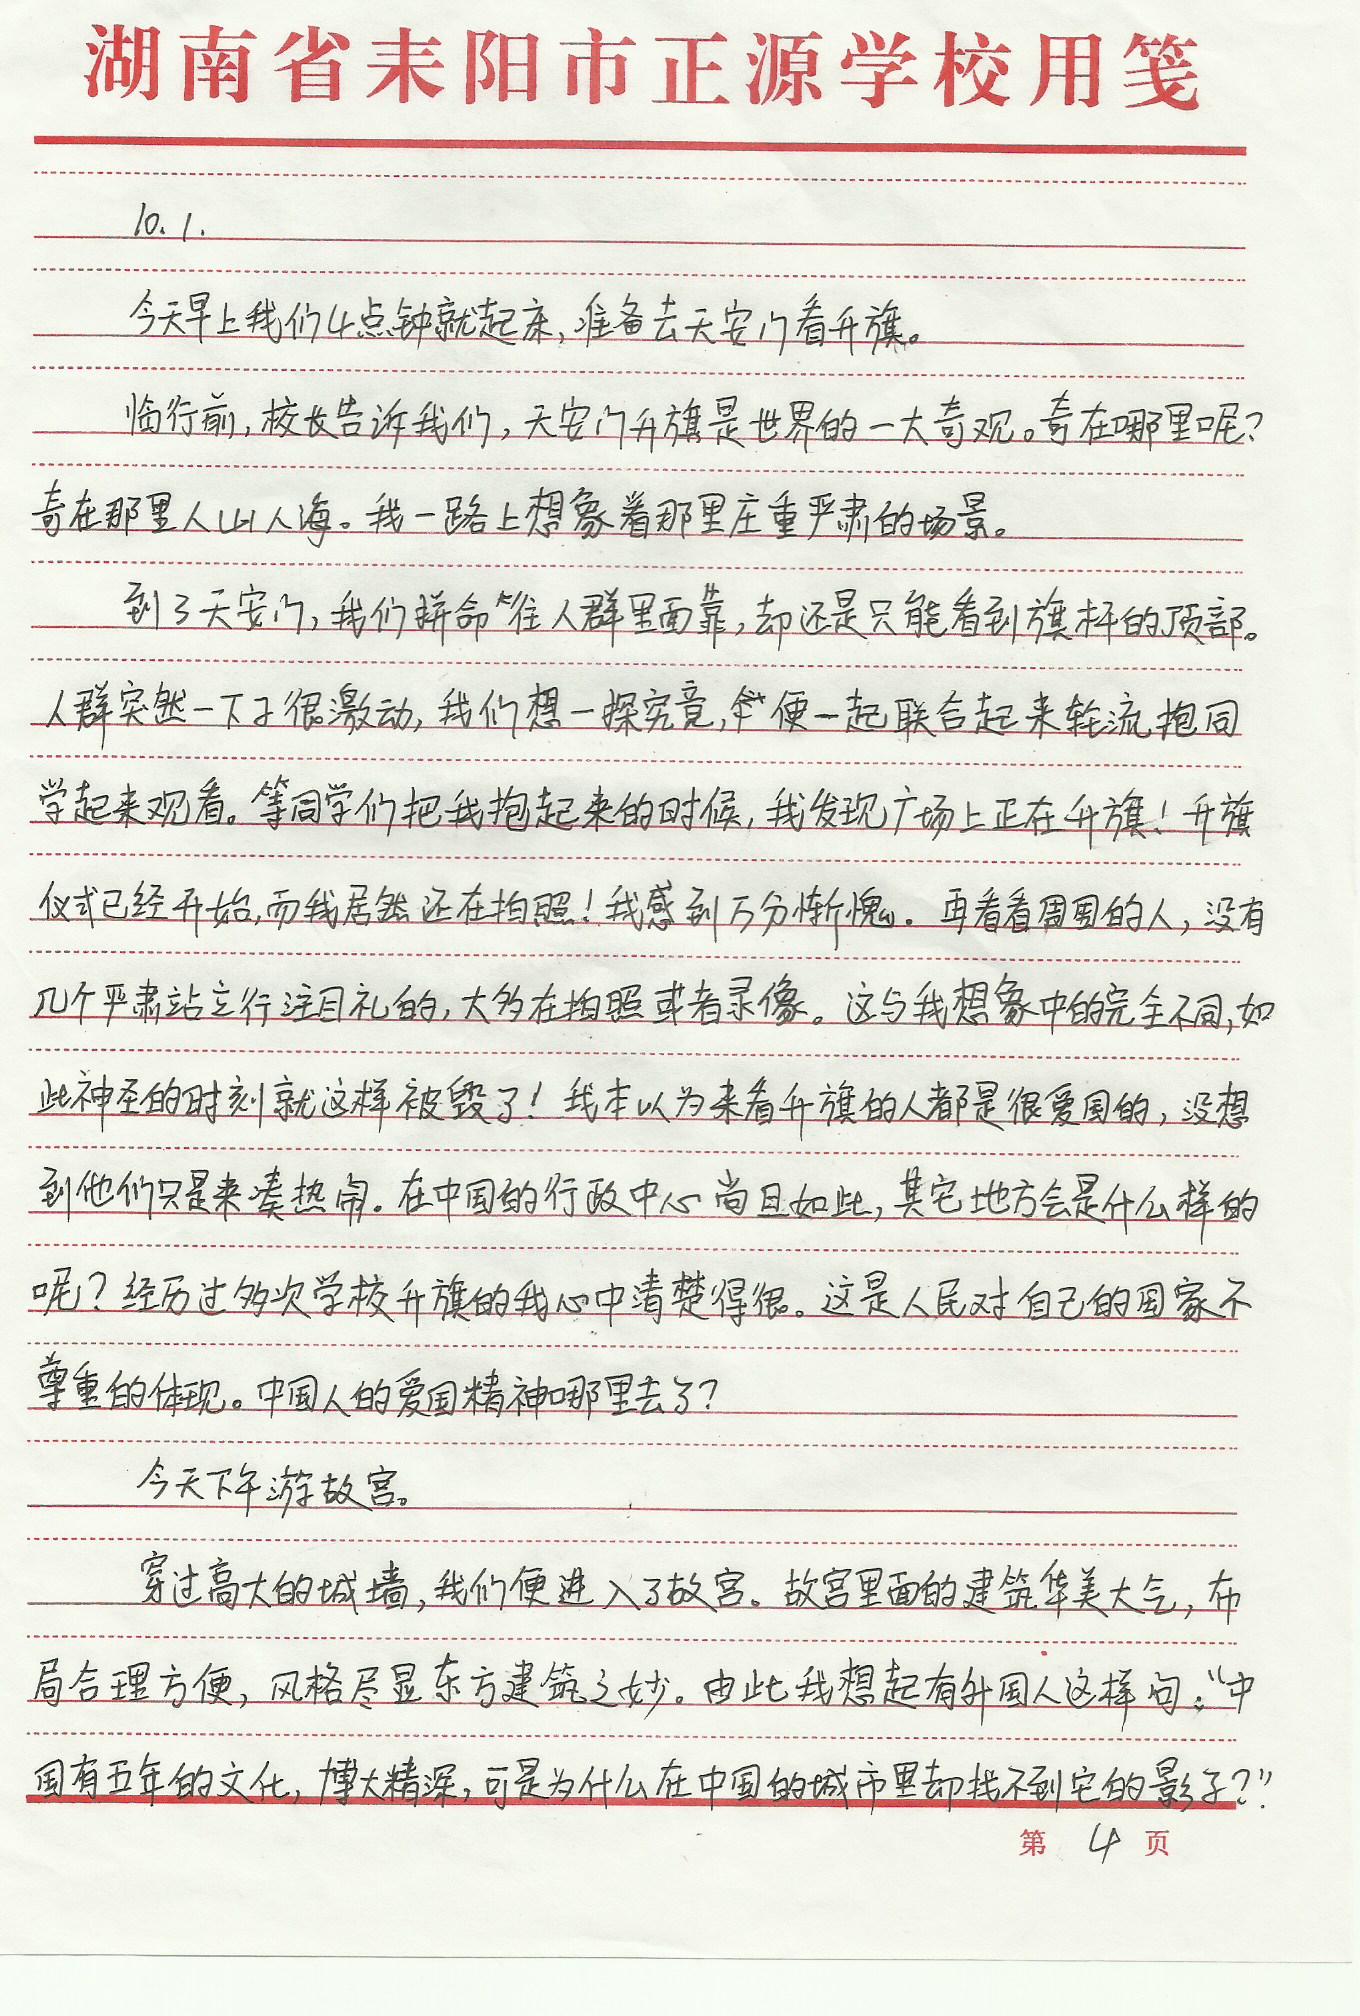 湖南省耒阳市正源学校用笺
10.1.
今天早上我们4点钟就起床,准备去天安门看升旗。
临行前,校长告诉我们,天安门升旗是世界的一大奇观。奇在哪里呢?
奇在那里人山人海。我一路上想象着那里庄重严肃的场景。
到了天安门,我们拼命往人群里面靠,却还是只能看到旗杆的顶部。
人群突然一下子很激动,我们想一探究竟,便一起联合起来轮流抱同
学起来观看。等同学们把我抱起来的时候,我发现广场上正在升旗!升旗
仪式已经开始,而我居然还在拍照!我感到万分惭愧。再看看周围的人,没有
几个严肃站立行注目礼的,大多在拍照或者录像。这与我想象中的完全不同,如
此神圣的时刻就这样被毁了!我本以为来看升旗的人都是很爱国的,没想
到他们只是来凑热闹。在中国的行政中心尚且如此,其它地方会是什么样的
呢?经历过多次学校升旗的我心中清楚得很。这是人民对自己的国家不
尊重的体现。中国人的爱国精神哪里去了?
今天下午游故宫。
穿过高大的城墙,我们便进入了故宫。故宫里面的建筑华美大气,布
局合理方便,风格尽显东方建筑之妙。由此我想起有外国人这样问:“中
国有五年的文化,博大精深,可是为什么在中国的城市里却找不到它的影子?”
第 4 页